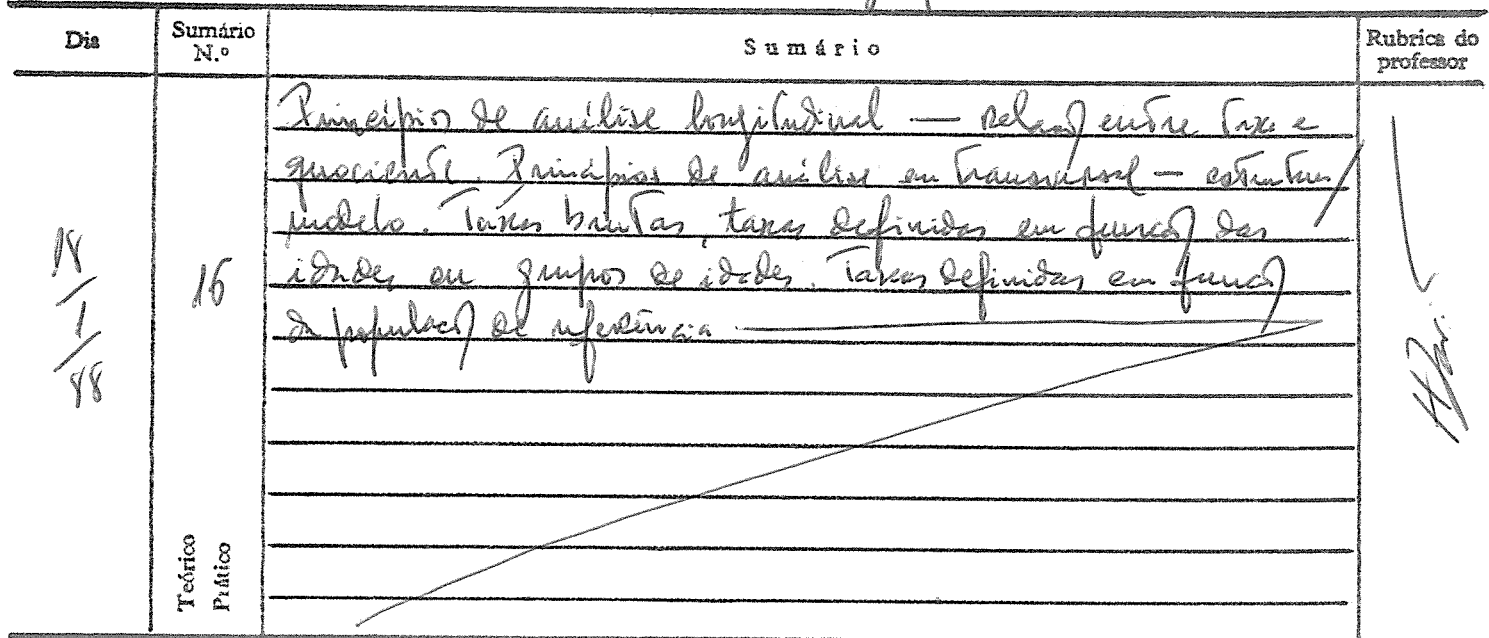 Dia
Sumário
N.º
Sumário
Rubrica do
professor
Princípios de análise longitudinal — relação entre taxa e
quociente. Princípios de análise em transversal — estrutura/
modelo. Taxas brutas, taxas definidas em função das
idades ou grupos de idades. Taxas definidas em função
da população de referência
18/1/88
16
Teórico
Prático